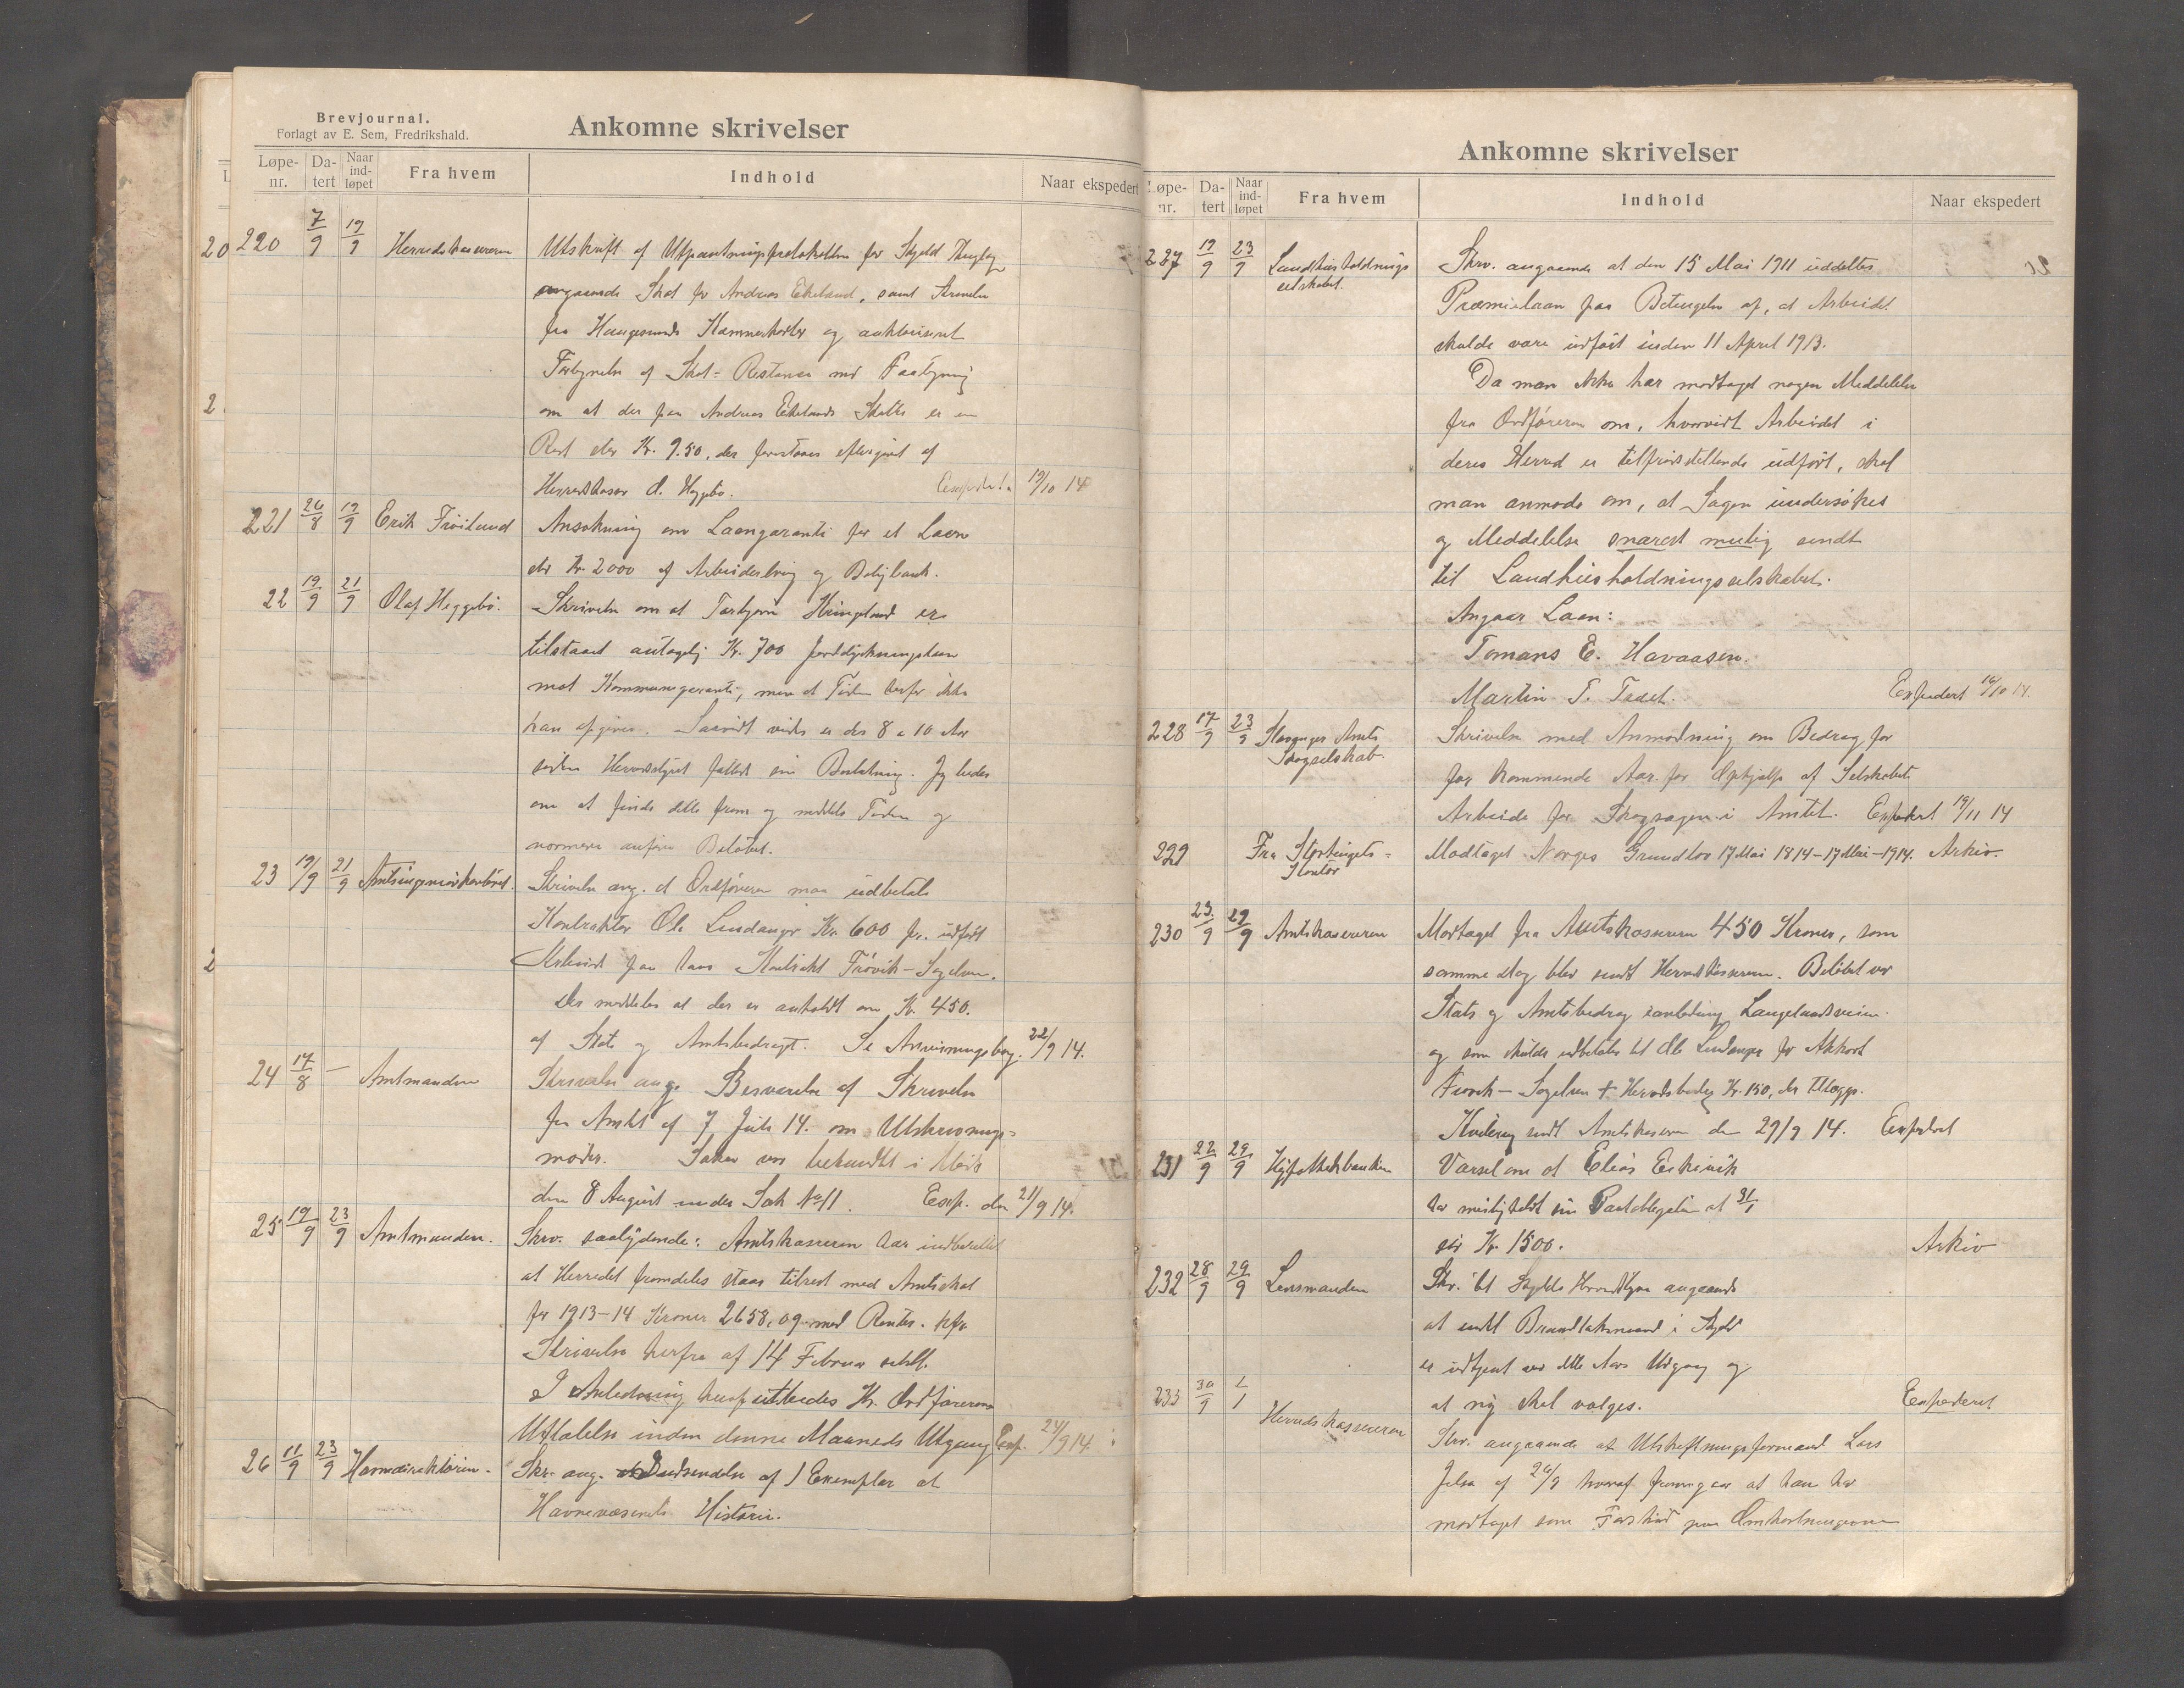 Brevjournal.
Forlagt av E. Sem, Fredrikshald.
Ankomne skrivelser
Løpe-nr. Da-tert Naar ind-løpet Fra hvem Indhold Naar ekspedert
220 7/9 19/9 Herredskassereren Utskrift af Utpantningsprotokollen for Skjold Thinglag
angaaende Skat for Andreas Ekeland, samt Skrivelse
fra Haugesunds Kæmnerkontor og
Fortegnelse af Skat-Restanse med Paategning
om at der paa Andreas Ekelands Skatte er en
Rest stor Kr. 9.50, der foreslaaes eftergivet af
Herredskasser O. Heggebø. Expedert 19/10 14
221 26/8 19/9 Erik Frøiland Ansøkning om Laangaranti for et Laan
stor Kr. 2000 af Arbeiderbrug og Boligbank.
22 19/9 21/9 Olaf Heggebø. Skrivelse om at Torbjørn Kringeland er
tilstaaet antagelig Kr. 700 Jorddyrkningslaan
mot Kommunegaranti, men at Tiden herfor ikke
kan opgives. Saavidt vides er det 8 a 10 Aar
siden Herredstyret fattet sin Beslutning. Jeg beder
om at finde dette frem og meddele Tiden og
nærmere anføre Beløbet.
23 19/9 21/9 Amtsingeniørkontoret. Skrivelse ang. at Ordføreren maa udbetale
Kontraktør Ole Lindanger Kr. 600 for udført
Arbeide paa hans Kontrakt Frøvik-Sogelven.
Der meddeles at der er anholdt om Kr. 450.
af Stats og Amtsbidraget. Se Anvisningsbog. 22/9 14.
24 17/8 — Amtmanden Skrivelse ang. Besvarelse af Skrivelse
fra Amtet af 7 Juli 14. om Utskrivnings-
møder. Saken var behandlet i Møde
den 8 August under Sak No 11. Exp. den 21/9 14.
25 19/9 23/9 Amtmanden. Skrv. saalydende: Amtskassereren har indberettet
at Herredet fremdeles staar tilrest med Amtsskat
for 1913-14 Kroner 2658,09 med Renter. kfr
Skrivelse herfra af 14 Februar sidstl.
I Anledning heraf utbedes Hr. Ordførerens
Uttalelse inden denne Maaneds Utgang Exp. 24/9 14.
26 11/9 23/9 Havnedirektøren. Skr. ang. Indsendelse af 1 Exemplar af
Havnevæsenets Historie.
Ankomne skrivelser
Løpe-nr. Da-tert Naar ind-løpet Fra hvem Indhold Naar ekspedert
227 19/9 23/9 Landhusholdningsselskabet. Skrv. angaaende at den 15 Mai 1911 uddeltes
Præmielaan paa Betingelse af, at Arbeidet
skulde være udført inden 11 April 1913.
Da man ikke har modtaget nogen Meddelelse
fra Ordføreren om, hvorvidt Arbeidet i
deres Herred er tilfredsstillende udført, skal
man anmode om, at Sagen undersøkes
og Meddelelse snarest mulig sendt
til Landhusholdningsselskabet.
Angaar Laan:
Tomas E. Havaasen.
Martin T. Tveit. Expedert 16/10 14.
228 17/9 23/9 Stavanger Amts Skogselskab. Skrivelse med Anmodning om Bidrag for
for kommende Aar for Ophjælp af Selskabets
Arbeide for Skogsagen i Amtet. Expedert 19/11 14
229 Fra Stortingets-Kontor Modtaget Norges Grundlov 17 Mai 1814-17 Mai-1914. Arkiv.
230 23/9 29/9 Amtskassereren Modtaget fra Amtskassereren 450 Kroner, som
samme dag blev sendt Herredskassereren. Beløbet er
Stats og Amtsbidrag i anledning Langelandsveien.
og som skulde udbetales til Ole Lindanger for Akkord
Frøvik-Sogelven + Herredsbidrag Kr. 150, der
Kvittering sendt Amtskasseren den 29/9 14. Expedert
231 22/9 29/9 Hypothekbanken Varsel om at Elias Eikivik
har misligholdt sin Panteobligation af 31/1
stor Kr. 1500. Arkiv
232 28/9 29/9 Lensmanden Skr. til Skjolds Herredstyre angaaende
at antal Brandtaksmænd i Skjold
er udtjent ved dette Aars Udgang og
at ny skal vælges. Expederet
233 30/9 1/1 Herredskassereren Skr. angaaende at Utskiftningsformand Lars
Jelsa af 26/9 hvoraf fremgaar at han har
modtaget som Forskud paa Omkostningerne